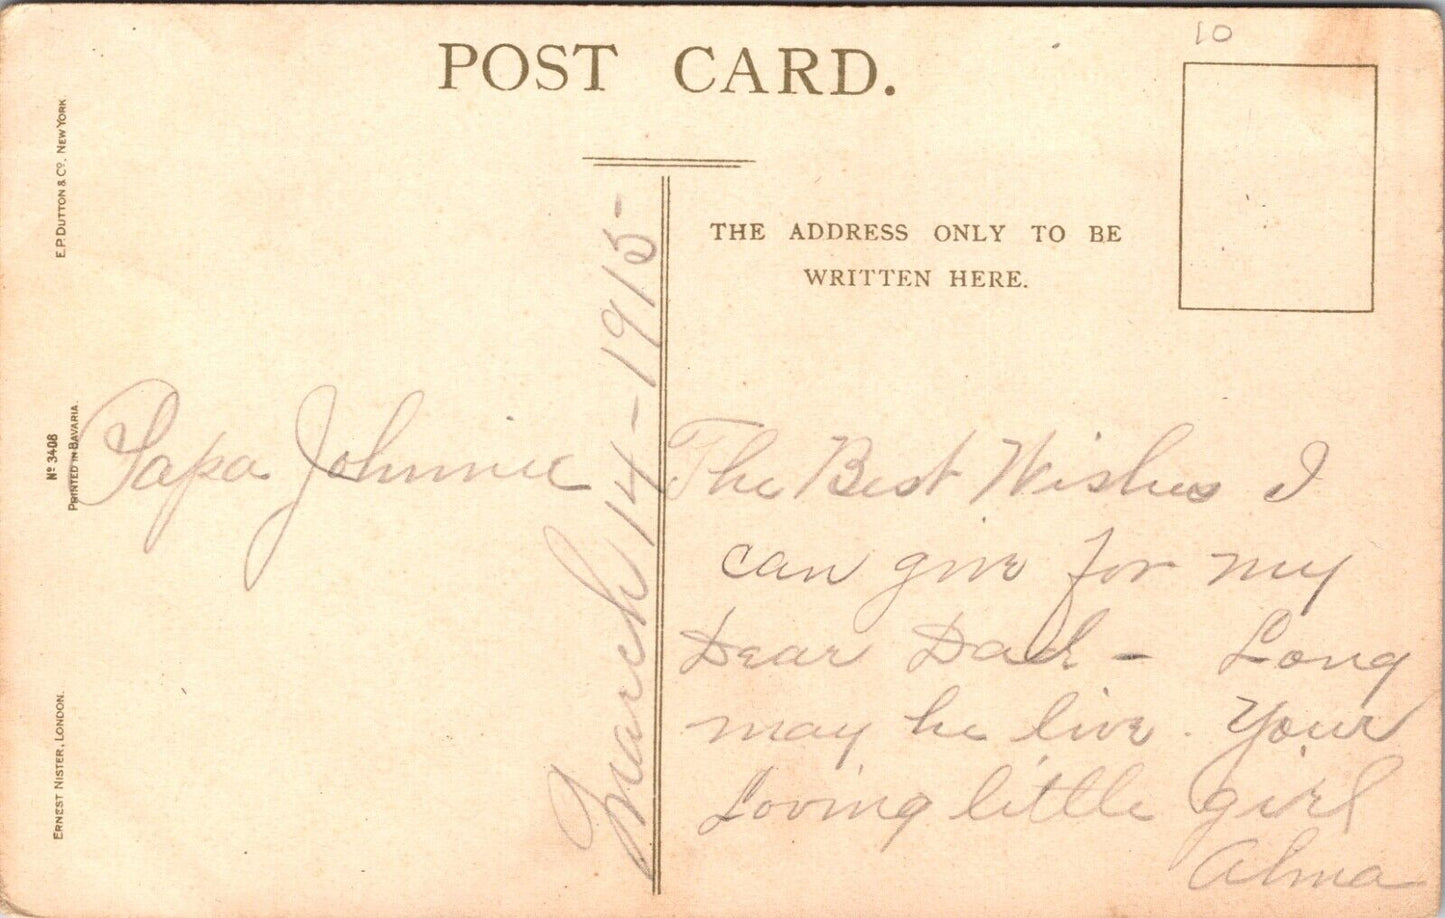 10
POST CARD.
THE ADDRESS ONLY TO BE
WRITTEN HERE.
E.P. DUTTON & Cº. NEW YORK
Nº 3408
PRINTED IN BAVARIA.
ERNEST NISTER, LONDON.
Papa Johnnie
March 14-1915-
The Best Wishes I
can give for my
Dear Dad - Long
may he live. Your
Loving little girl
Alma